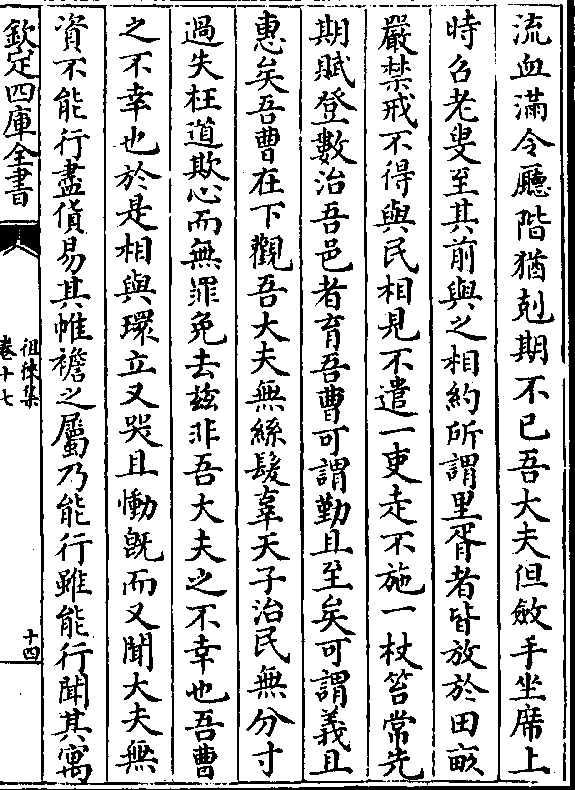 流血滿令廳階猶剋期不已吾大夫但斂手坐席上
時召老叟至其前與之相約所謂里胥者皆放於田畝
嚴禁戒不得與民相見不遣一吏走不施一杖笞常先
期賦登數治吾邑者育吾曹可謂勤且至矣可謂義且
惠矣吾曹在下觀吾大夫無絲髮辜天子治民無分寸
過失枉道欺心而無罪免去兹非吾大夫之不幸也吾曹
之不幸也於是相與環立又哭且慟旣而又聞大夫無
資不能行盡貨易其帷襜之屬乃能行雖能行聞其寓
欽定四庫全書
徂徠集
卷十七
十四